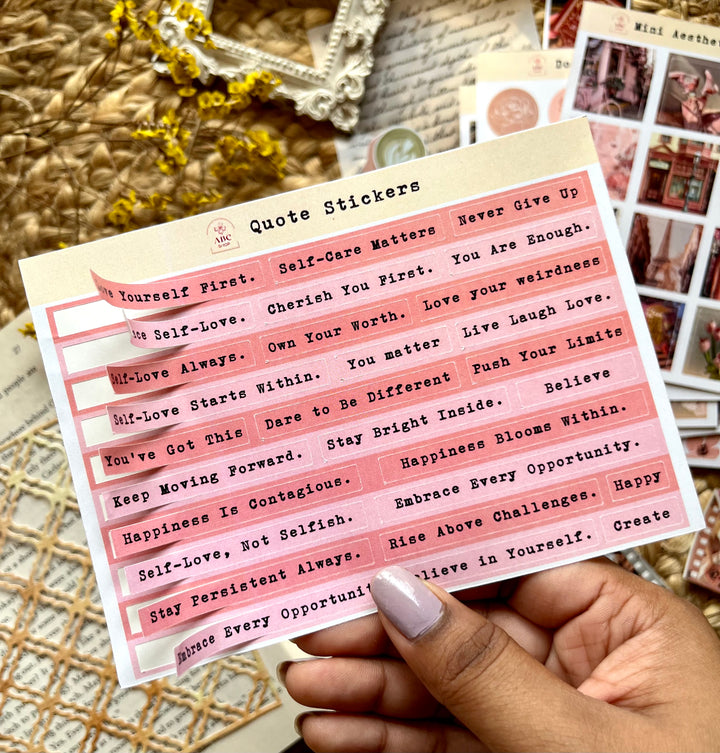 Mini Aesthe
ABC
SHOP
Quote Stickers
Yourself First. Self-Care Matters Never Give Up
Self-Love. Cherish You First. You Are Enough.
Self-Love Always. Own Your Worth. Love your weirdness
Self-Love Starts Within. You matter Live Laugh Love.
You've Got This Dare to Be Different Push Your Limits
Keep Moving Forward. Stay Bright Inside. Believe
Happiness Is Contagious. Happiness Blooms Within.
Self-Love, Not Selfish. Embrace Every Opportunity.
Stay Persistent Always. Rise Above Challenges. Happy
Embrace Every Opportunit elieve in Yourself. Create